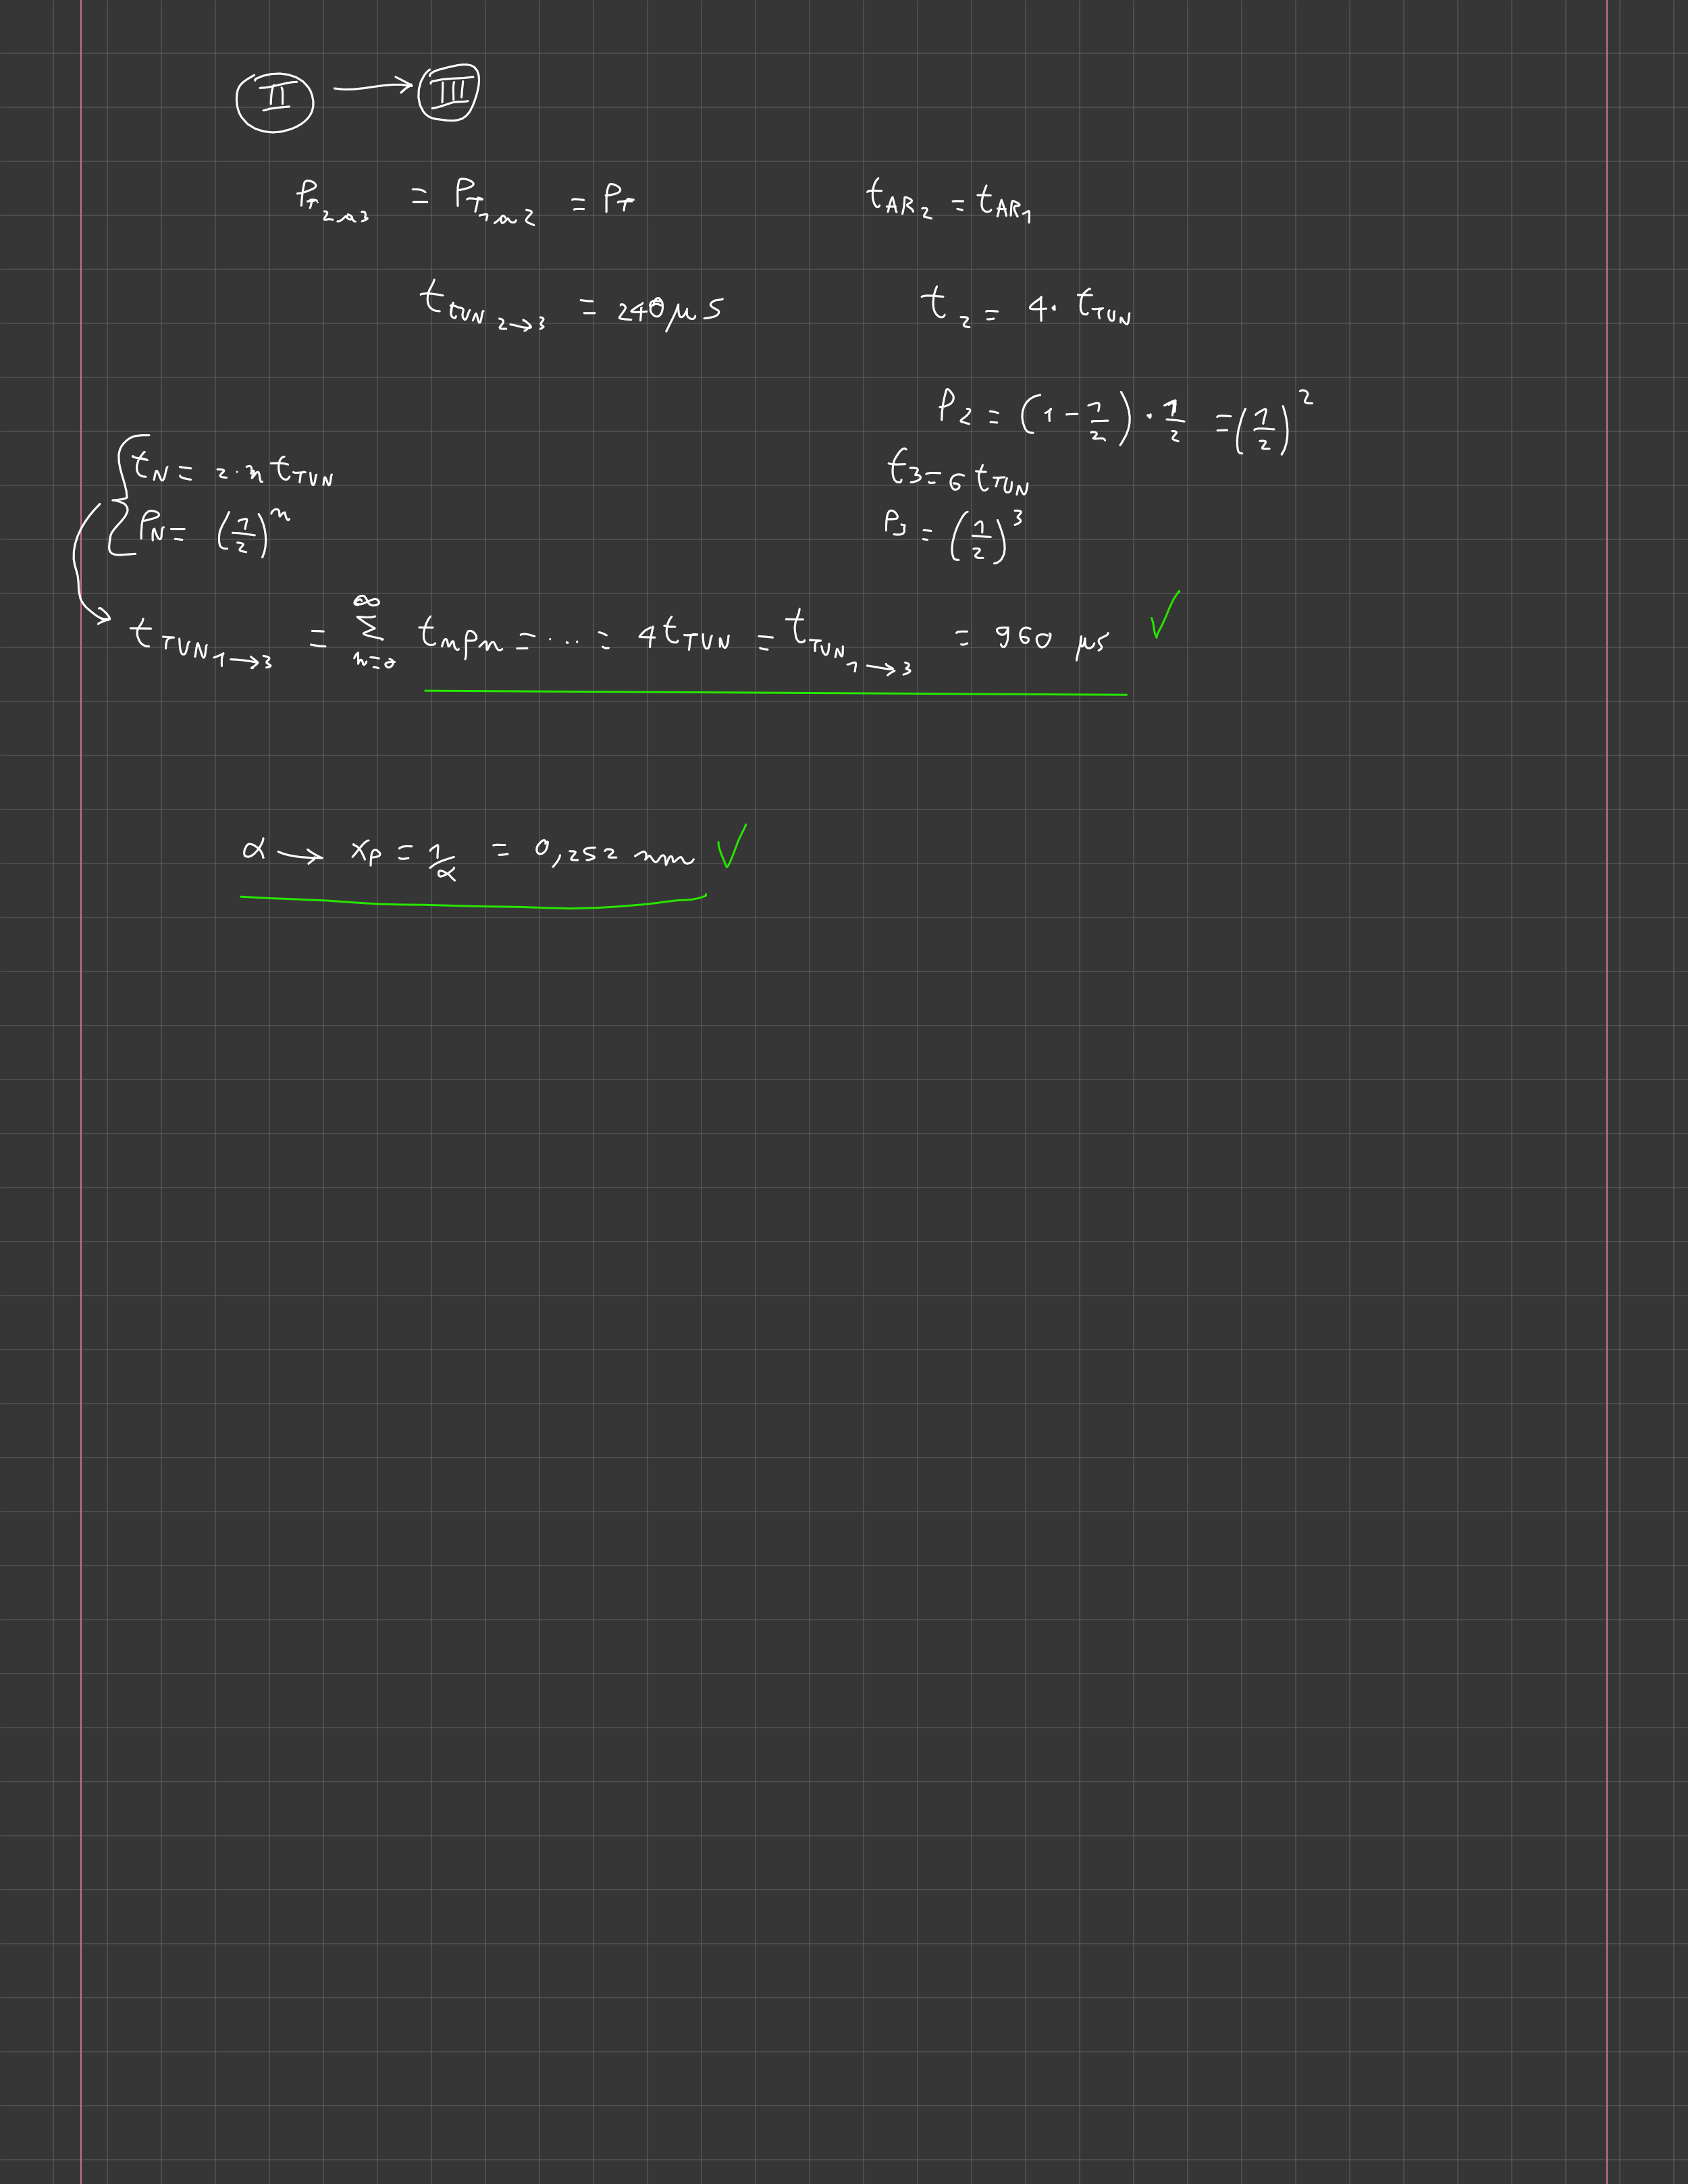 II → III
P_T 2→3 = P_T 1→2 = P_T    t_AR2 = t_AR1
t_tUN 2→3 = 240 μs    t_2 = 4 · t_TUN
P_2 = (1 - 1/2) · 1/2 = (1/2)^2
t_N = 2 · n t_TUN    t_3 = 6 t_TUN
P_N = (1/2)^n    P_3 = (1/2)^3
→ t_TUN 1→3 = ∑_{n=0}^{∞} t_n p_n = ... = 4 t_TUN = t_TUN 1→3 = 960 μs ✓
α → x_p = 1/α = 0,252 nm ✓